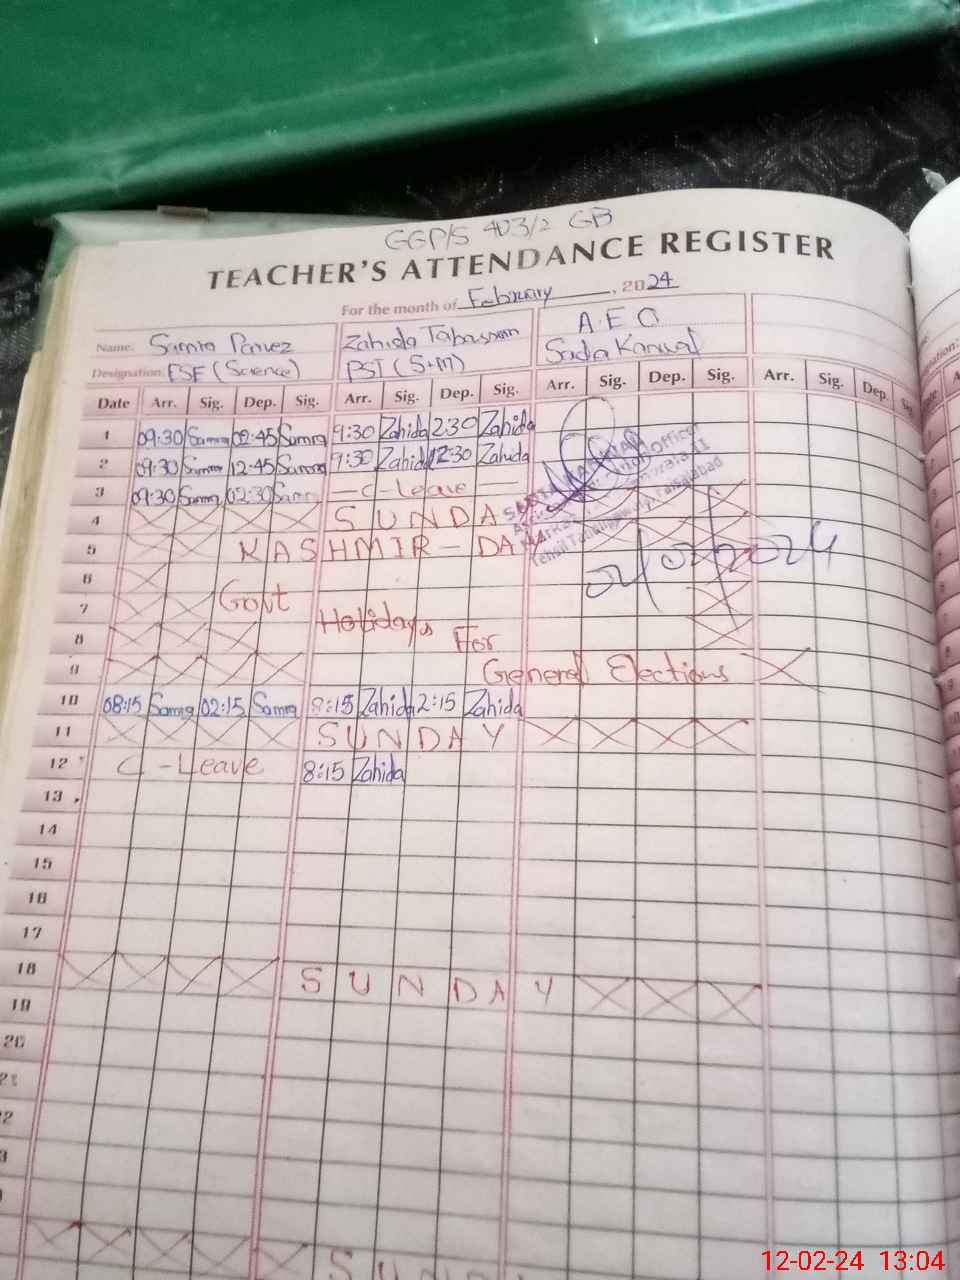 GGP/S 403/2 GB
TEACHER'S ATTENDANCE REGISTER
For the month of February, 2024
Name. Samra Parvez Zahida Tabassam A.E.O
Designation: ESE (Science) PST (S+M) Sadia Kanwal
Date Arr. Sig. Dep. Sig. Arr. Sig. Dep. Sig. Arr. Sig. Dep. Sig. Arr. Sig. Dep. Sig.
1 09:30 Samra 02:45 Samra 9:30 Zahida 2:30 Zahida
2 09:30 Samra 12:45 Samra 9:30 Zahida 12:30 Zahida
3 09:30 Samra 02:30 Samra — C - Leave —
4 SUNDA
5 KASHMIR - DA
6
Govt
7 Holidays
8 For
9 General Elections
10 08:15 Samra 02:15 Samra 8:15 Zahida 2:15 Zahida
11 SUNDAY
12 C - Leave 8:15 Zahida
13
14
15
16
17
18 SUNDAY
19
20
SUN
12-02-24 13:04